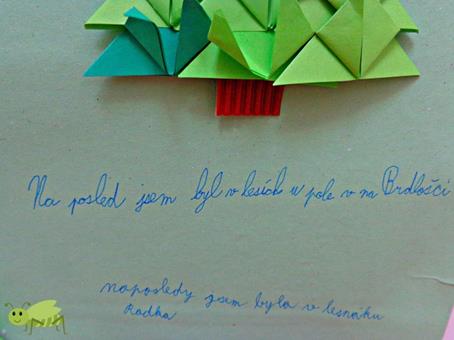 Na posled jsem byl v lesích u pole v na Brdlošci
naposledy jsem byla v lesnáku
Radka